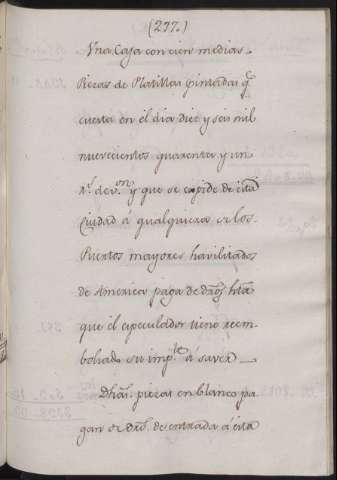 (297.)
Una Caja con cien medias
Piezas de Platillas pintadas q.e
cuesta en el dia diez y seis mil
nuevecientos quarenta y un
r.s de v.on y que se expide de esta
Ciudad á qualquiera de los
Puertos mayores havilitados
de America paga de dros hta
que el especulador tiene reem-
bolsado su imp.te á saver
Dhas. piezas en blanco pa
gan de dros. de entrada á esta